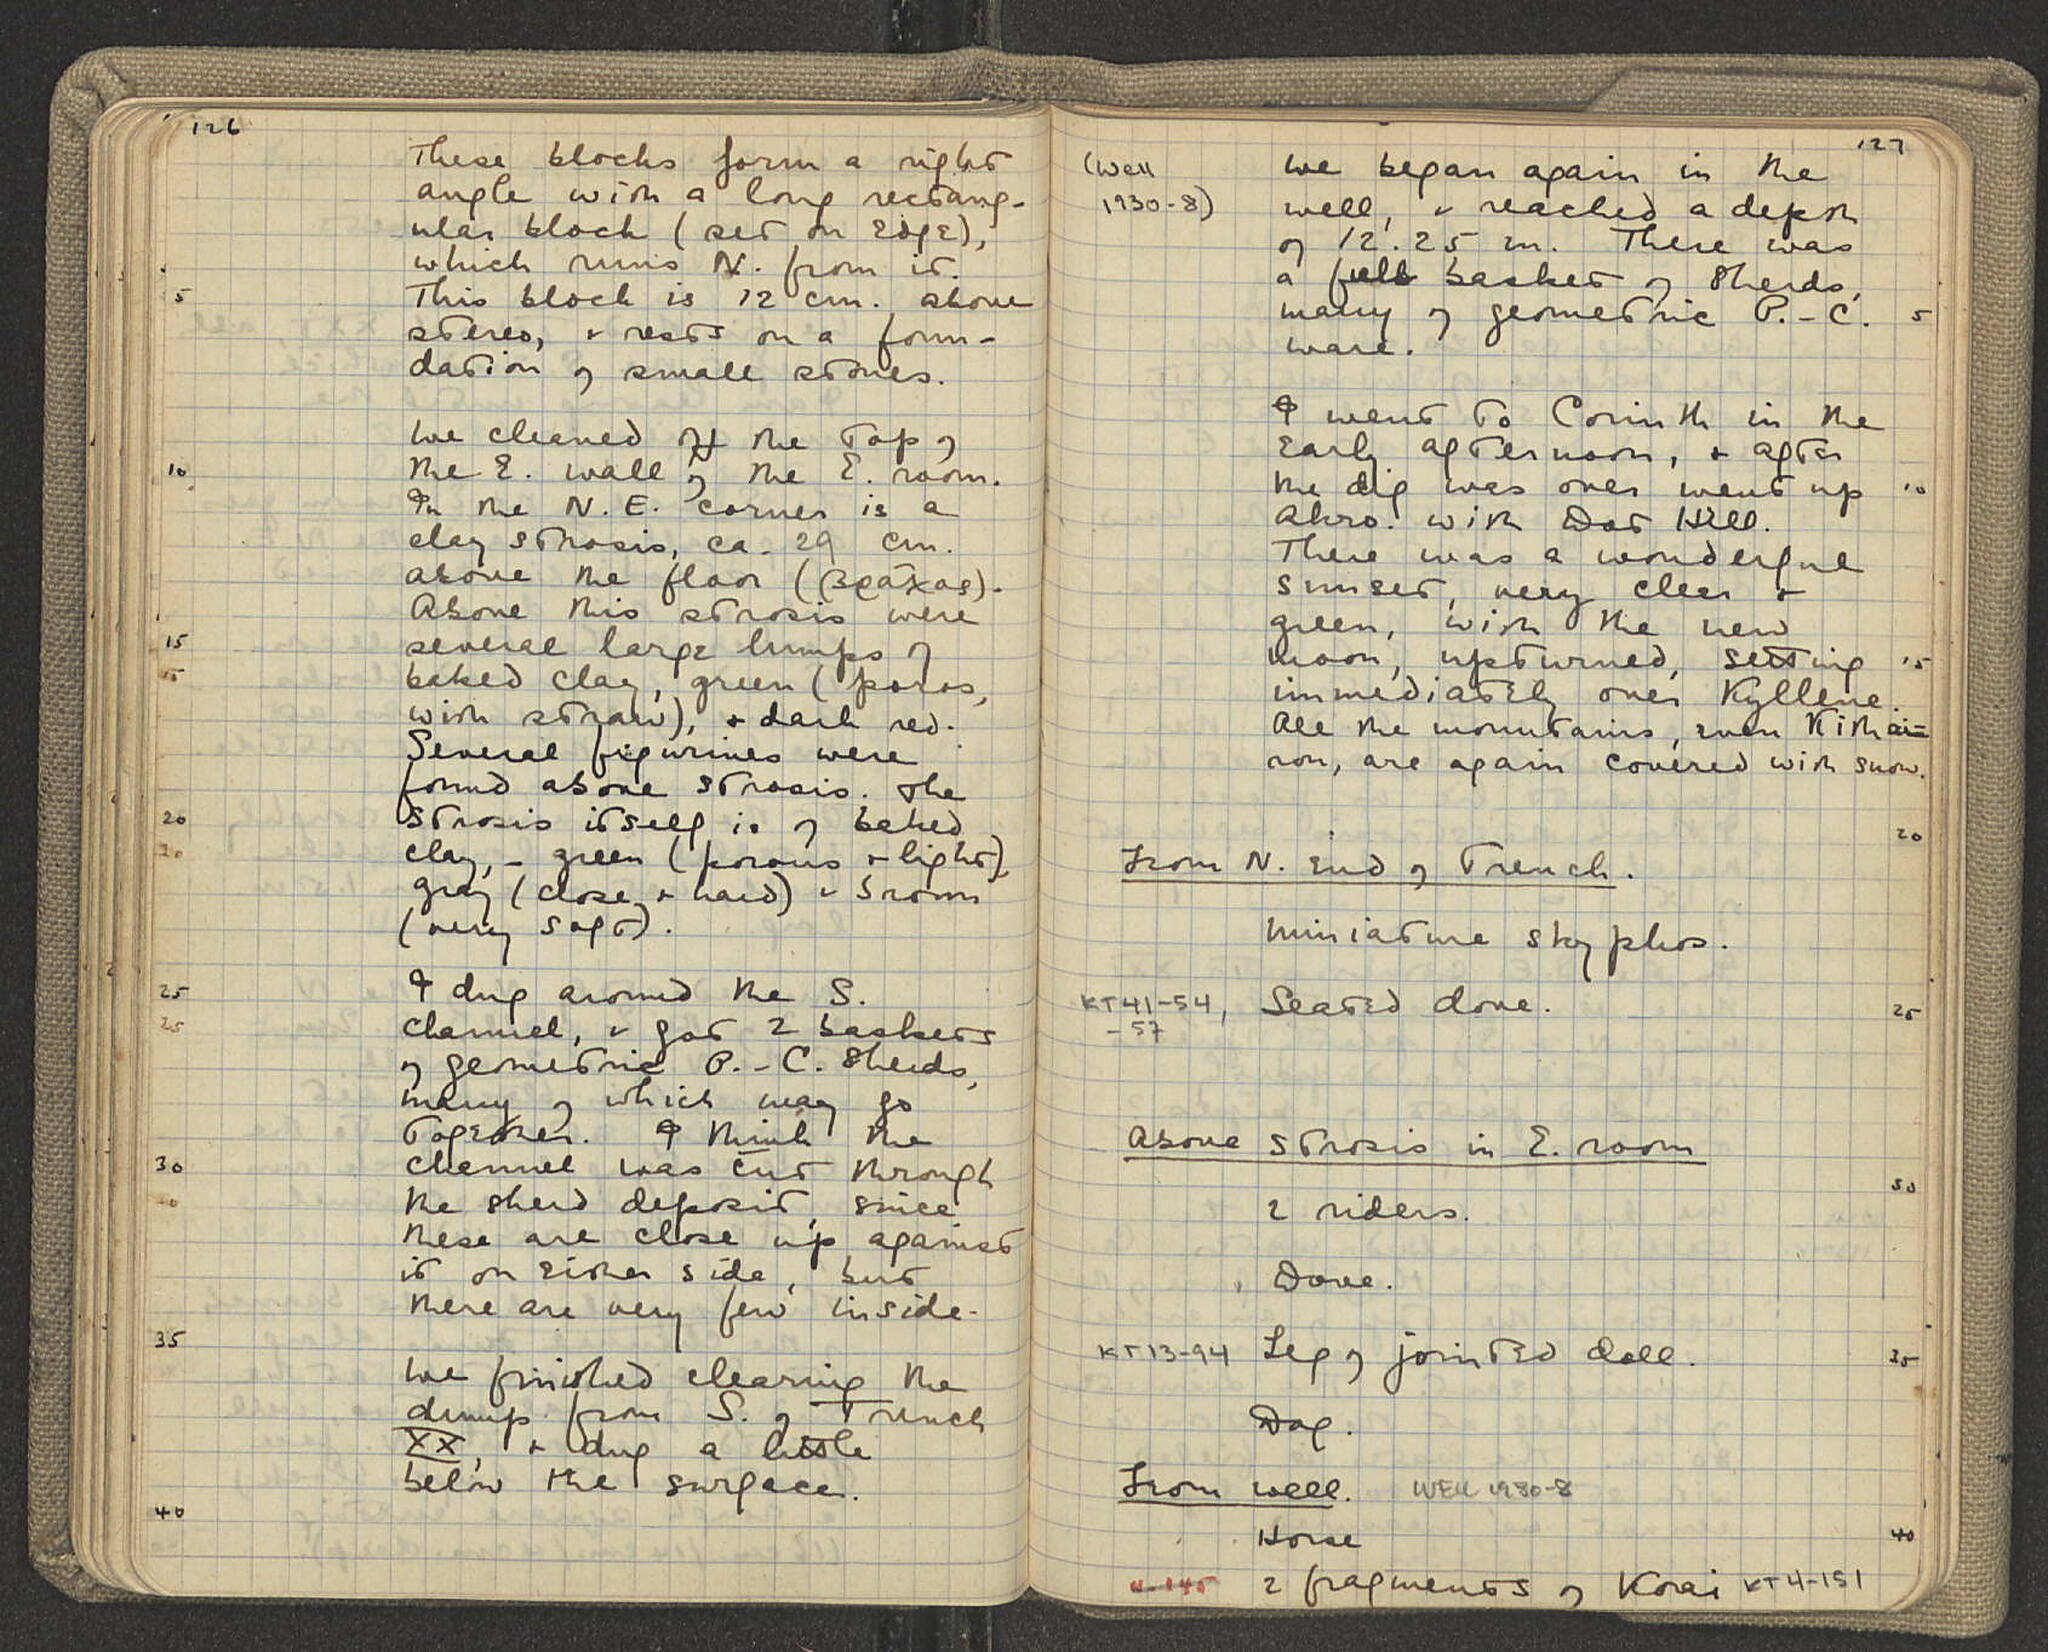 126
These blocks form a right
angle with a long rectang-
ular block (set on edge),
which runs N. from it.
5 This block is 12 cm. above
stereo, & rests on a foun-
dation of small stones.
We cleaned off the top of
10 the E. wall of the E. room.
In the N.E. corner is a
clay strosis, ca. 29 cm.
above the floor (βράχος).
Above this strosis were
15 several large lumps of
15 baked clay, green (poros,
with straw), & dark red.
Several figurines were
found above strosis. The
20 strosis itself is of baked
20 clay, - green (porous & light),
gray (close & hard) & brown
(very soft).
25 I dug around the S.
25 channel, & got 2 baskets
of geometric P.-C. sherds,
many of which may go
together. I think the
30 channel was cut through
the sherd deposit, since
these are close up against
it on either side, but
there are very few inside.
35
We finished clearing the
dump from S. of Trench
XX, & dug a little
below the surface.
40
127
(Well 1930-8)
We began again in the
well, & reached a depth
of 12.25 m. There was
a full basket of sherds,
many of geometric P.-C. 5
ware.
I went to Corinth in the
early afternoon, & after
the dig was over went up 10
Akro. with Dot Hill.
There was a wonderful
sunset, very clear &
green, with the new
moon, upturned, setting 15
immediately over Kyllene.
All the mountains, even Kithai=
ron, are again covered with snow.
20
From N. end of Trench.
Miniature skyphos.
KT41-54, Seated dove. 25
-57
Above strosis in E. room
30
2 riders.
Dove.
KT13-94 Leg of jointed doll. 35
Dog.
From well. WELL 1930-8
Horse 40
2 fragments of Korai KT4-151